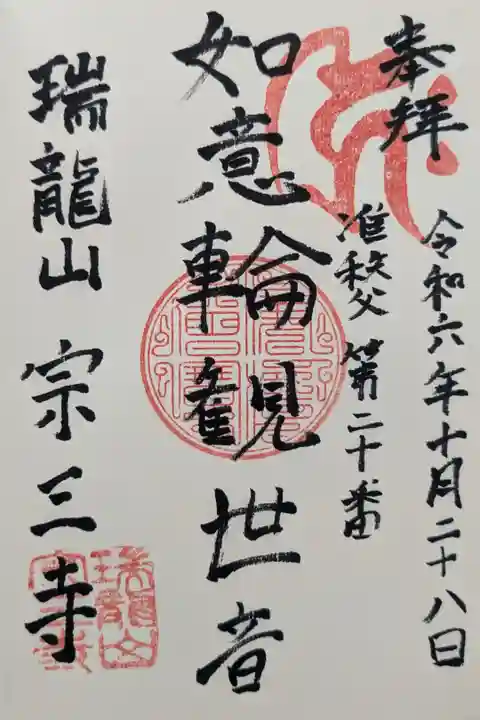 奉拝
令和六年十月二十八日
准秩父第二十番
如意輪観世音
瑞龍山 宗三寺